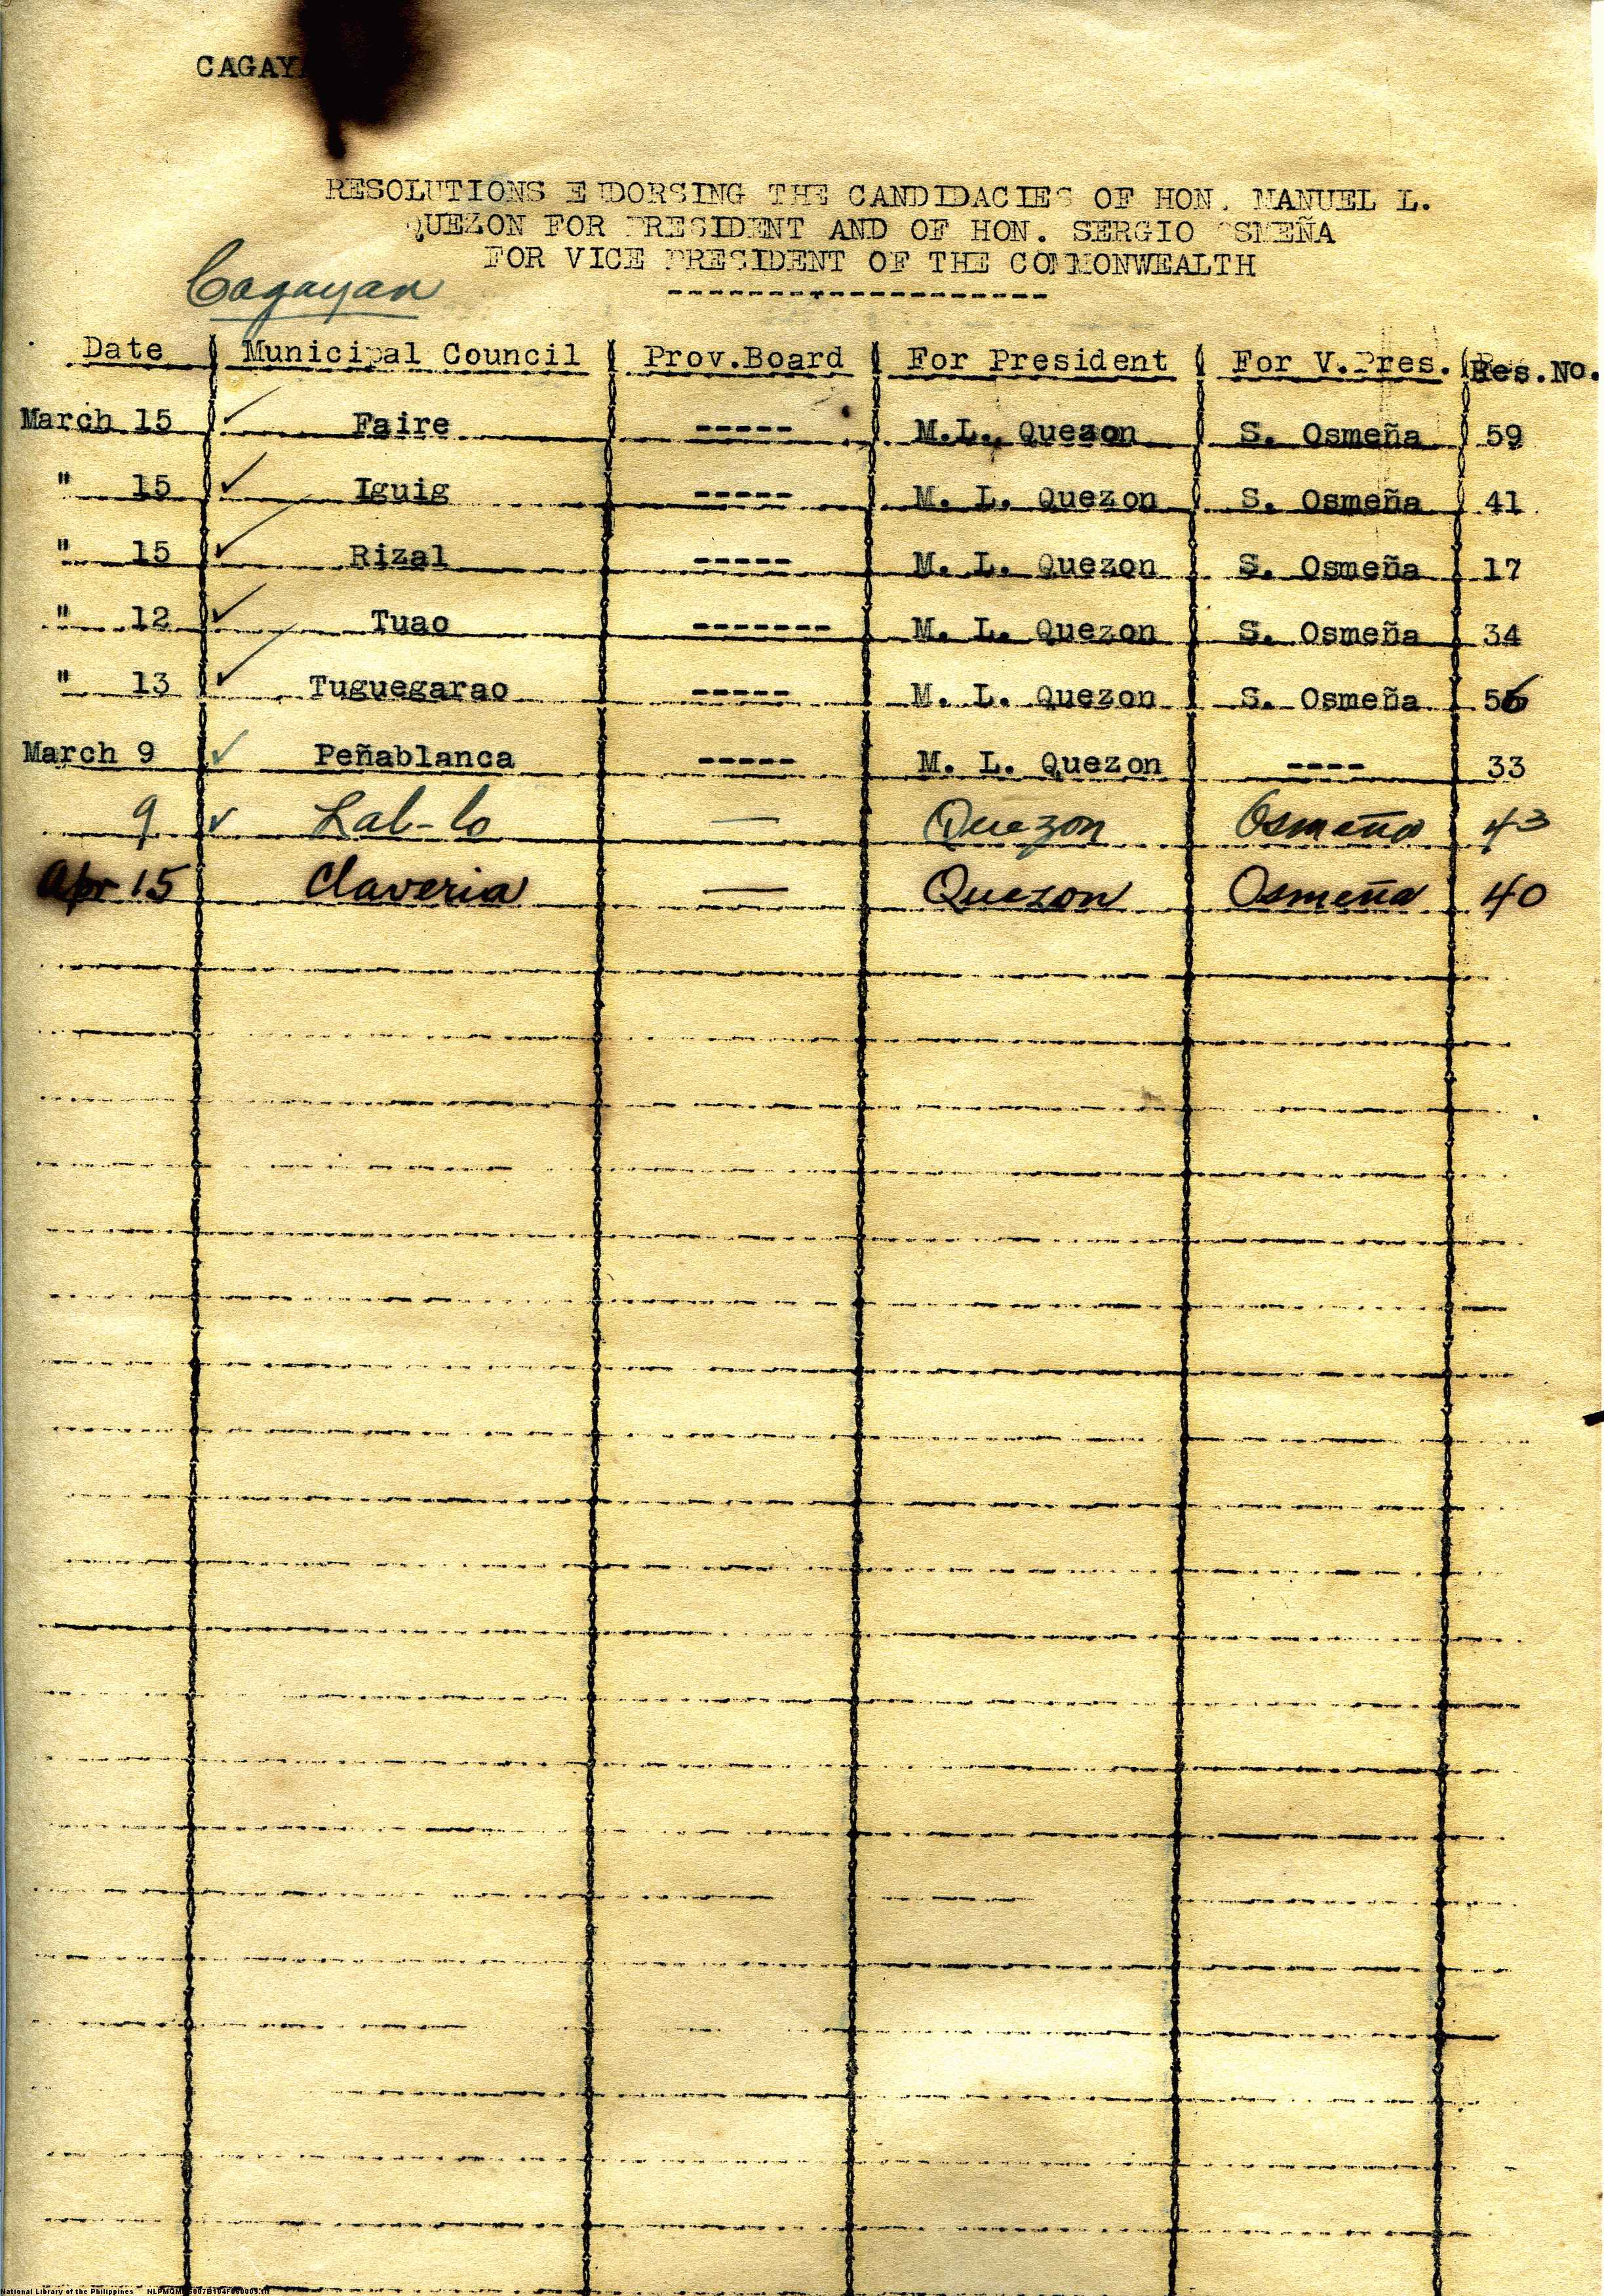 CAGAY
RESOLUTIONS ENDORSING THE CANDIDACIES OF HON. MANUEL L.
QUEZON FOR PRESIDENT AND OF HON. SERGIO OSMEÑA
FOR VICE PRESIDENT OF THE COMMONWEALTH
-------------------
Cagayan
Date Municipal Council Prov.Board For President For V.Pres. Res.No.
March 15 ✓ Faire ----- M.L. Quezon S. Osmeña 59
" 15 ✓ Iguig ----- M. L. Quezon S. Osmeña 41
" 15 ✓ Rizal ----- M. L. Quezon S. Osmeña 17
" 12 ✓ Tuao ------- M. L. Quezon S. Osmeña 34
" 13 ✓ Tuguegarao ----- M. L. Quezon S. Osmeña 56
March 9 ✓ Peñablanca ----- M. L. Quezon ---- 33
9 ✓ Lal-lo — Quezon Osmeña 43
Apr 15 Claveria — Quezon Osmeña 40
National Library of the Philippines